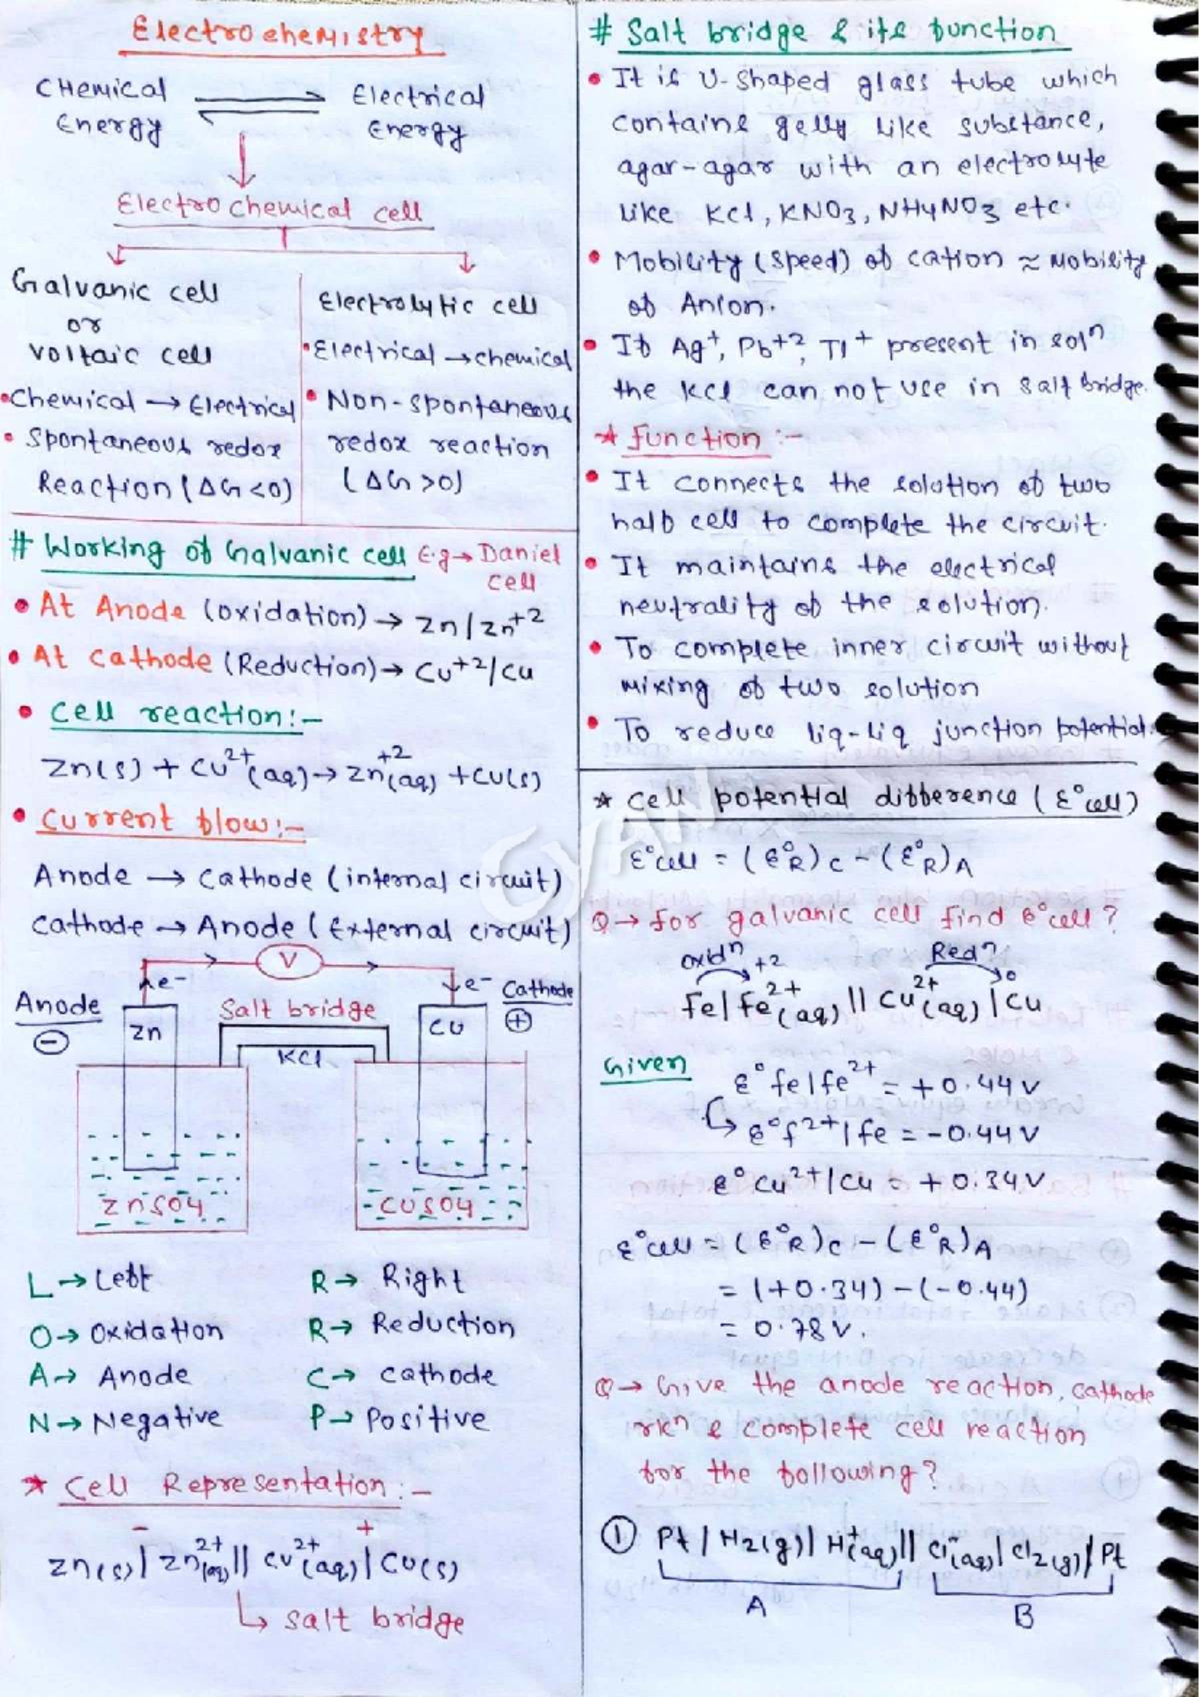 Electrochemistry
Chemical Energy ⇌ Electrical Energy
Electrochemical cell
Galvanic cell
or
Voltaic cell
• Chemical → Electrical
• Spontaneous redox
Reaction (ΔG<0)
Electrolytic cell
• Electrical → chemical
• Non-spontaneous
redox reaction
(ΔG>0)
# Working of Galvanic cell E.g → Daniel
cell
• At Anode (oxidation) → Zn/Zn+2
• At cathode (Reduction) → Cu+2/Cu
• cell reaction:-
Zn(s) + Cu2+(aq) → Zn+2(aq) + Cu(s)
• Current flow:-
Anode → cathode (internal circuit)
Cathode → Anode (External circuit)
V
e- e-
Anode Salt bridge Cathode
- Zn Cu +
KCl
ZnSO4 CuSO4
L → Left R → Right
O → Oxidation R → Reduction
A → Anode C → cathode
N → Negative P → Positive
* Cell Representation:-
- +
Zn(s)|Zn2+(aq)||Cu2+(aq)|Cu(s)
↳ salt bridge
# Salt bridge & its function
• It is U-shaped glass tube which
contains gelly like substance,
agar-agar with an electrolyte
like KCl, KNO3, NH4NO3 etc.
• Mobility (speed) of cation ≈ mobility
of Anion.
• If Ag+, Pb+2, Tl+ present in soln
the KCl can not use in salt bridge.
* function:-
• It connects the solution of two
half cell to complete the circuit.
• It maintains the electrical
neutrality of the solution.
• To complete inner circuit without
mixing of two solution
• To reduce liq-liq junction potential.
* Cell potential difference (E°cell)
E°cell = (E°R)C - (E°R)A
Q → for galvanic cell find E°cell?
oxidn +2 Redn 0
Fe|Fe2+(aq)||Cu2+(aq)|Cu
Given E°fe|fe2+ = +0.44V
↳ E°f2+|fe = -0.44V
E°Cu2+/Cu = +0.34V
E°cell = (E°R)C - (E°R)A
= (+0.34) - (-0.44)
= 0.78V.
Q → Give the anode reaction, cathode
rxn & complete cell reaction
for the following?
① Pt|H2(g)|H+(aq)||Cl-(aq)|Cl2(g)|Pt
A B
GYAN